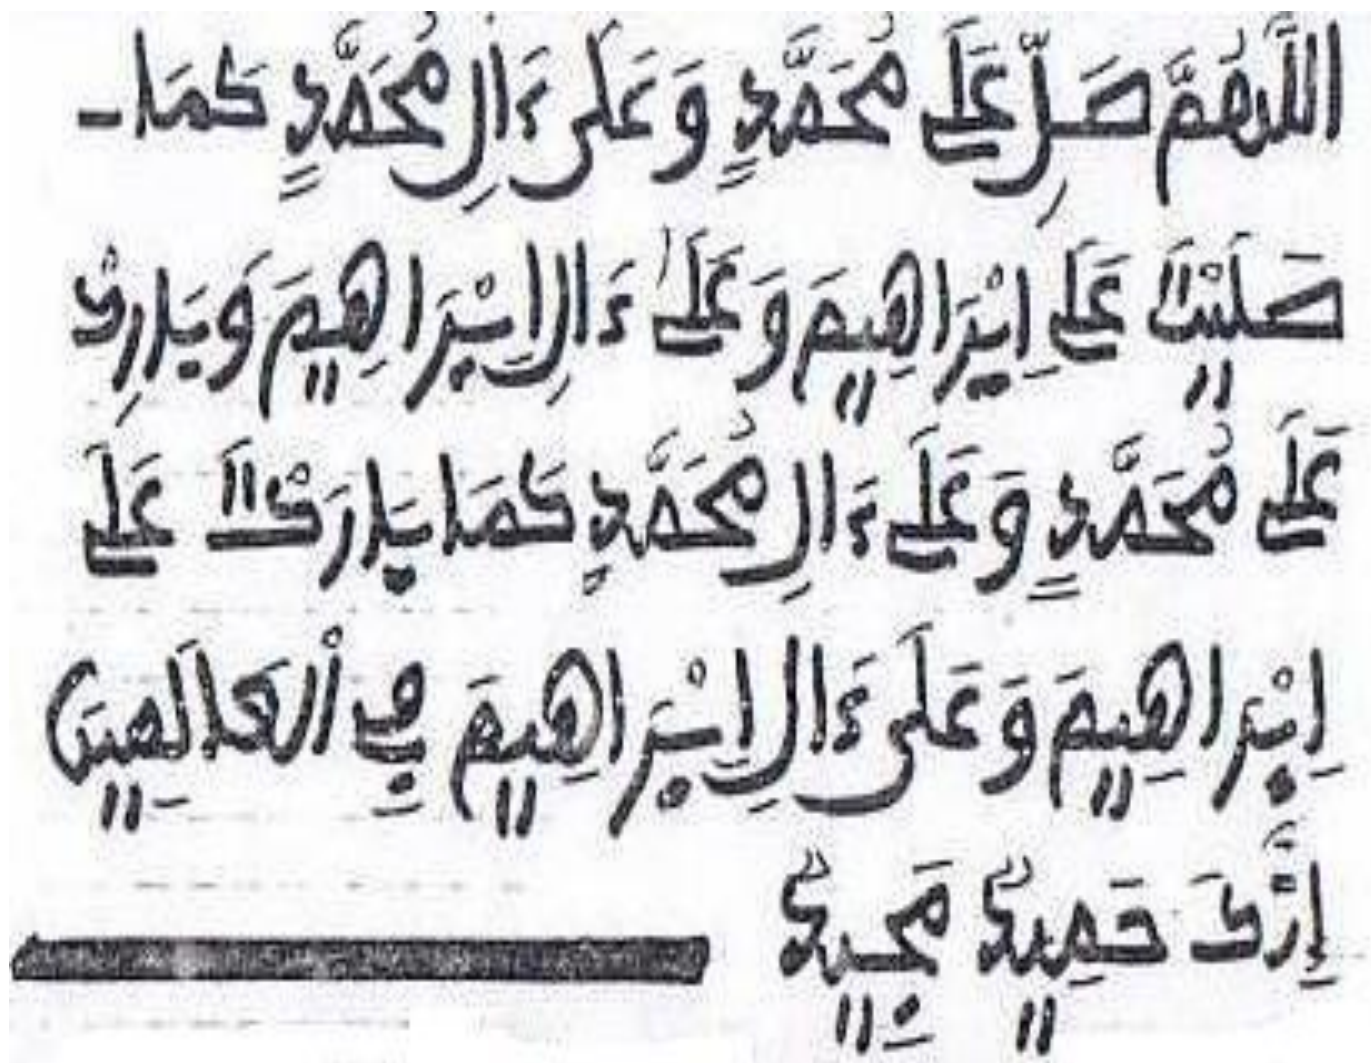 اللَّهُمَّ صَلِّ عَلَى مُحَمَّدٍ وَعَلَى ءَالِ مُحَمَّدٍ كَمَا
صَلَّيْتَ عَلَى إِبْرَاهِيمَ وَعَلَى ءَالِ إِبْرَاهِيمَ وَبَارِكْ
عَلَى مُحَمَّدٍ وَعَلَى ءَالِ مُحَمَّدٍ كَمَا بَارَكْتَ عَلَى
إِبْرَاهِيمَ وَعَلَى ءَالِ إِبْرَاهِيمَ فِي الْعَالَمِينَ
إِنَّكَ حَمِيدٌ مَجِيدٌ